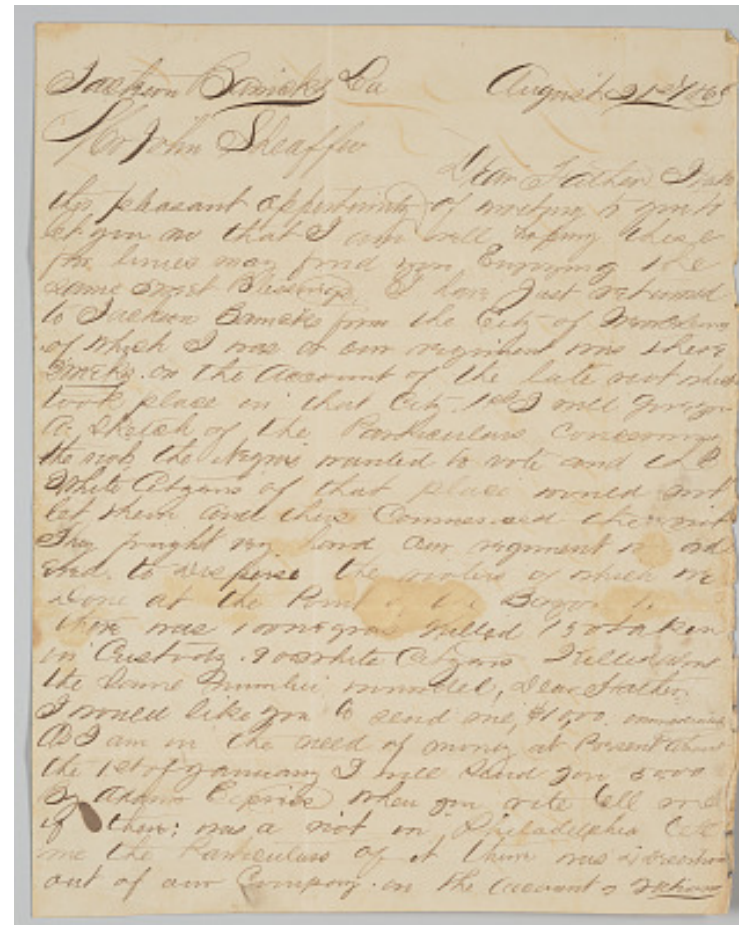 Jackson Barricks La August 21st 186
Mr John Sheaffer
Dear Father I take
this pleasant oppertunity of writing to you to
let you no that I am well hoping these
few lines may find you Enjoying the
same Great Blessings, I have Just returned
to Jackson Barricks from the City of
of which I was at our regiment was there
on the Account of the late riot which
took place in that City. 1st I will give you
a Sketch of the Particulars Concerning
the riot the Negros wanted to vote and the
White Citizans of that place would not
let them and this Commenced the riot
They fought very hard our regiment
to disperse the rioters of which we
done at the Point of the
there was 100 negros killed 150 taken
in Custody. white Citizans Killed about
the Same Number wounded, Dear Father
I would like you to send me, $10,00.
As I am in the need of money at Present about
the 1st of January I will Send you
By Adams Express when you rite tell me
if there was a riot in Philadelphia let
me the Particulars of it there was
out of our Company. on the Account of